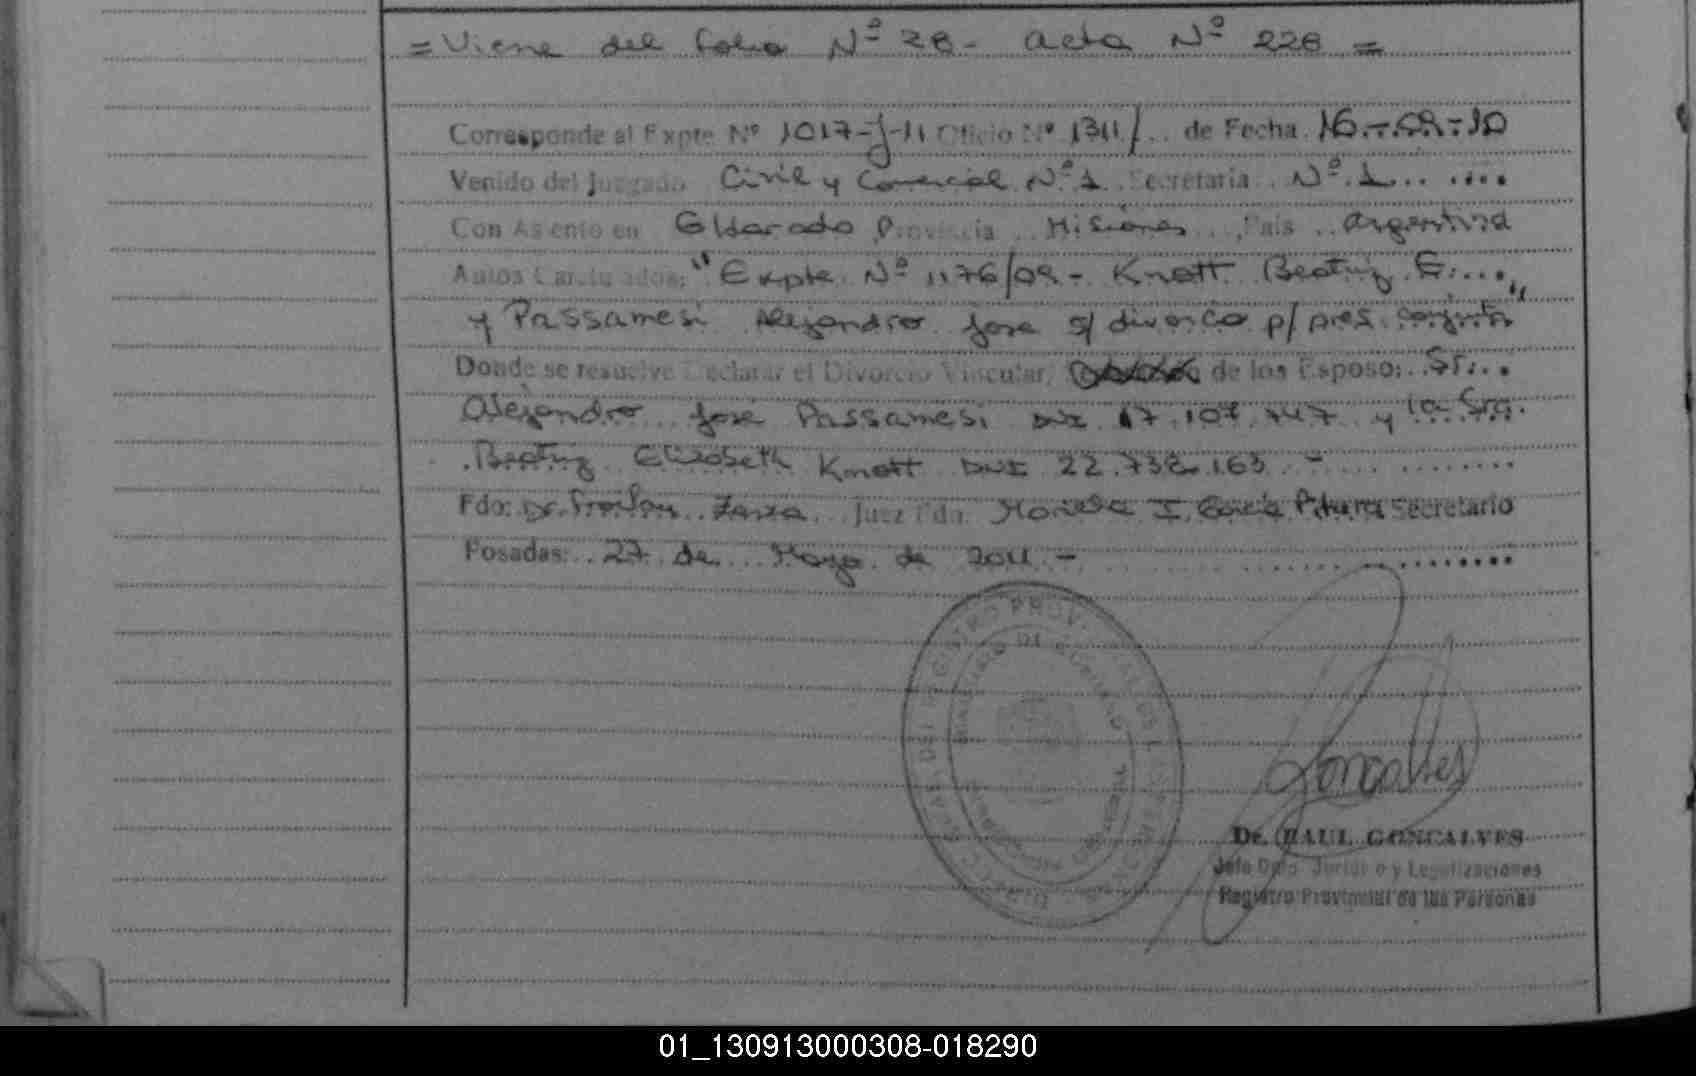 = Viene del folio Nº 28 - acta Nº 228 =
Corresponde al Expte Nº 1017-J-11 Oficio Nº 1311/... de Fecha 16-09-10
Venido del Juzgado Civil y Comercial Nº 1 Secretaría Nº 1
Con Asiento en Eldorado Provincia Misiones, País Argentina
Autos Caratulados: "Expte Nº 1176/09 - Knott Beatriz E.
y Passamesi Alejandro José s/ divorcio p/ pres. conjunta"
Donde se resuelve Declarar el Divorcio Vincular, de los Esposos: Sr.
Alejandro José Passamesi DNI 17.107.747 y la Sra.
Beatriz Elizabeth Knott DNI 22.738.163 -
Fdo: Dr. Zarza Juez Fdo: I. García Secretario
Posadas: 27 de Mayo de 2011 -
REGISTRO PROV.
Goncalves
Dr. RAUL GONCALVES
Jefe Dpto. Jurídico y Legalizaciones
Registro Provincial de las Personas
01_130913000308-018290